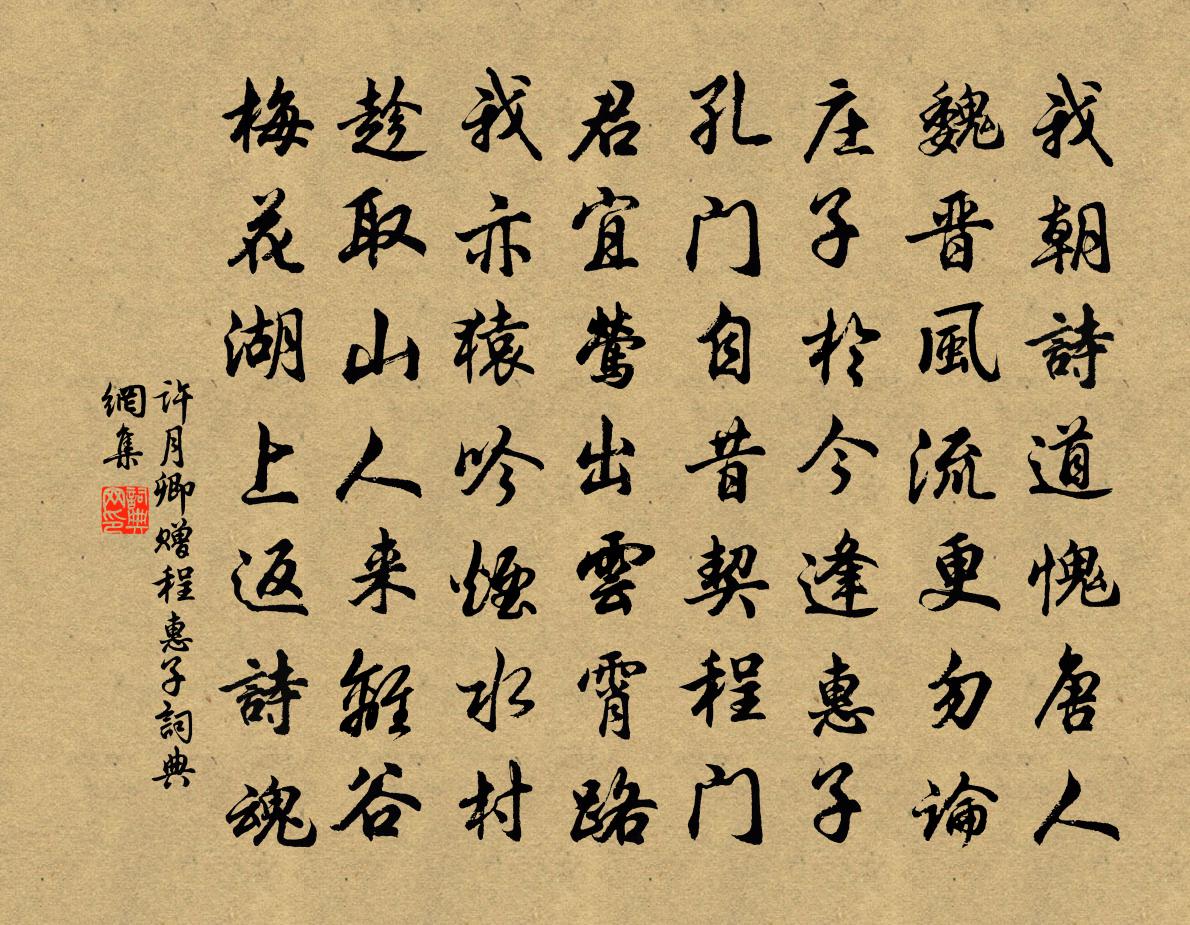 我朝詩道愧唐人
魏晋風流更勿論
庄子於今逢惠子
孔门自昔契程门
君宜鶯出雲霄路
我亦猿吟煙水村
趁取山人来離谷
梅花湖上返詩魂
许月卿赠程惠子詞典
網集
詞典
网印